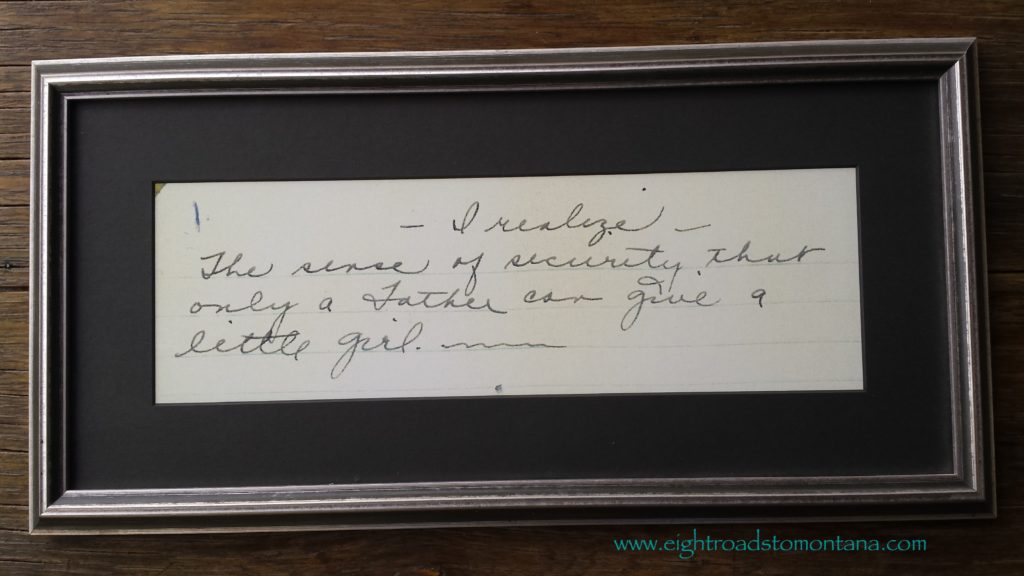 1
- I realize -
The sense of security that
only a Father can give a
little girl.
www.eightroadstomontana.com